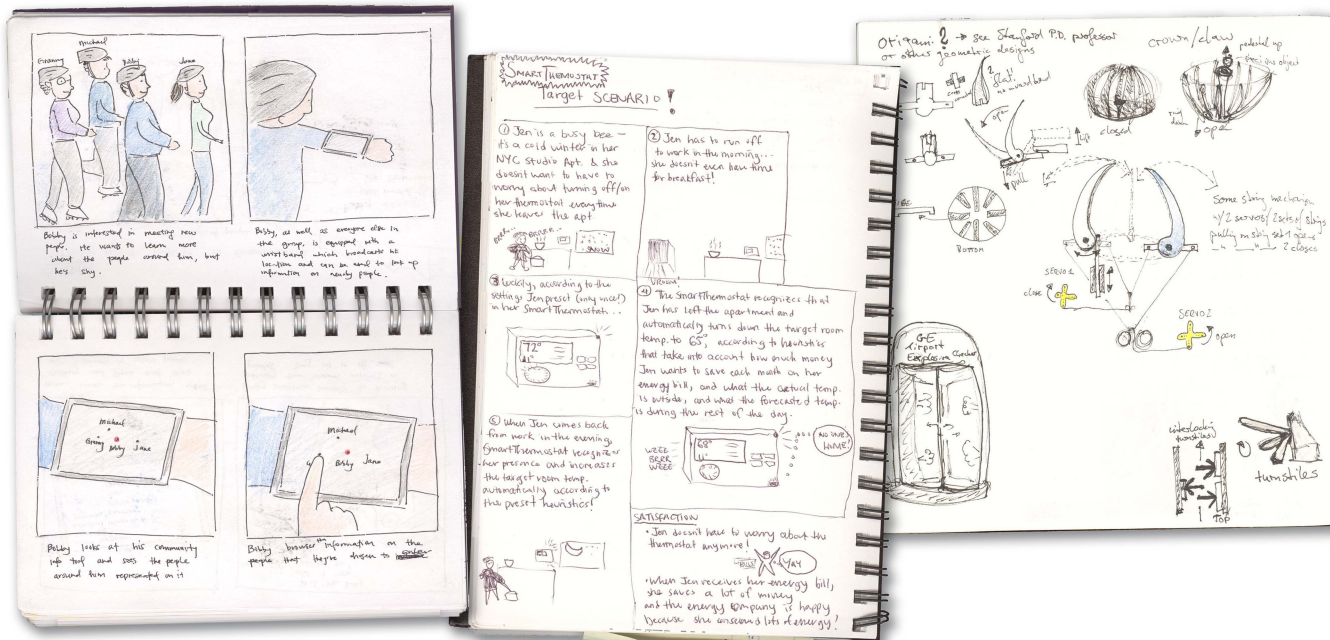 Granny
Michael
Bobby
Jane
Bobby is interested in meeting new
people. He wants to learn more
about the people around him, but
he's shy.
Bobby, as well as everyone else in
the group, is equipped with a
wristband which broadcasts his
location and can be used to look up
information on nearby people.
Michael
Granny Bobby Jane
Bobby looks at his community
info tool and sees the people
around him represented on it
Michael
Bobby Jane
Bobby browses the information on the
people that they've chosen to
SMART THEMOSTAT
Target SCENARIO!
① Jen is a busy bee —
it's a cold winter in her
NYC studio Apt. & she
doesn't want to have to
worry about turning off/on
her thermostat everytime
she leaves the apt
BRRRR...
SNOW
② Jen has to run off
to work in the morning...
she doesn't even have time
for breakfast!
VROOM!
③ Luckily, according to the
settings Jen preset (only once!)
in her SmartThermostat...
72°
④ The SmartThermostat recognizes that
Jen has left the apartment and
automatically turns down the target room
temp. to 65°, according to heuristics
that take into account how much money
Jen wants to save each month on her
energy bill, and what the actual temp.
is outside, and what the forecasted temp.
is during the rest of the day.
WZEE
BRRR
WZEE
68°
NO ONE'S
HOME!
⑤ When Jen comes back
from work in the evening,
SmartThermostat recognizes
her presence and increases
the target room temp.
automatically according to
the preset heuristics!
SATISFACTION
• Jen doesn't have to worry about the
thermostat anymore!
BILLS
YAY
• When Jen receives her energy bill,
she saves a lot of money
and the energy company is happy
because she conserved lots of energy!
Origami? → see Stanford P.D. professor
or other geometric designs
crown/claw
pedestal up
precious object
flat!
open
closed
ring down
open
lift
pull
BOTTOM
Some string mechanism
w/ 2 servos/2 sets of strings
pulling on string set 1 opens
2 closes
SERVO 1
close
SERVO 2
open
GE
Airport
Explosive Checker
interlocking
turnstiles
TOP
turnstiles